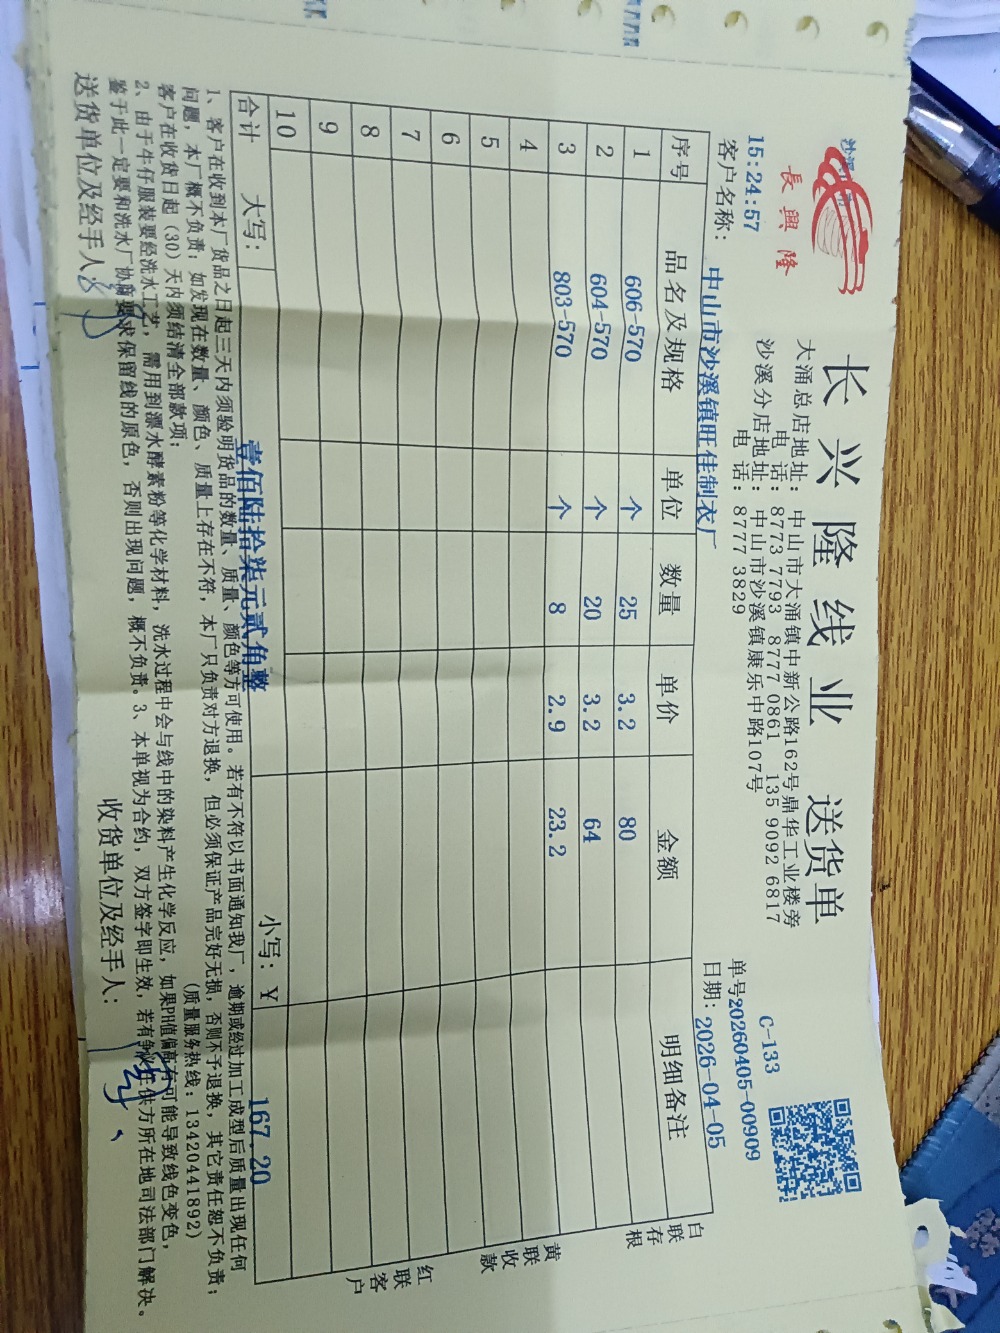 長興隆
长兴隆线业 送货单
大涌总店地址：中山市大涌镇中新公路162号鼎华工业楼旁
电 话：8773 7793 8777 0861 135 9092 6817
沙溪分店地址：中山市沙溪镇康乐中路107号
电 话：8777 3829
C-133
15:24:57
单号20260405-00909
客户名称：中山市沙溪镇旺佳制衣厂
日期：2026-04-05
序号 品名及规格 单位 数量 单价 金额 明细备注
1 606-570 个 25 3.2 80
2 604-570 个 20 3.2 64
3 803-570 个 8 2.9 23.2
4
5
6
7
8
9
10
合计 大写：壹佰陆拾柒元贰角整 小写：￥ 167.20
白联存根
黄联收款
红联客户
1、客户在收到本厂货品之日起三天内须验明货品的数量、质量、颜色等方可使用。若有不符以书面通知我厂，逾期或经过加工成型后质量出现任何
问题，本厂概不负责；如发现在数量、颜色、质量上存在不符，本厂只负责对方退换，但必须保证产品完好无损，否则不予退换，其它责任恕不负责；
客户在收货日起（30）天内须结清全部款项； （质量服务热线：13420441892）
2、由于牛仔服装要经洗水工艺，需用到漂水酵素粉等化学材料，洗水过程中会与线中的染料产生化学反应，如果PH值偏高有可能导致线色变色，
鉴于此一定要和洗水厂协商要求保留线的原色，否则出现问题，概不负责。3、本单视为合约，双方签字即生效，若有争议在供方所在地司法部门解决。
送货单位及经手人：
收货单位及经手人：